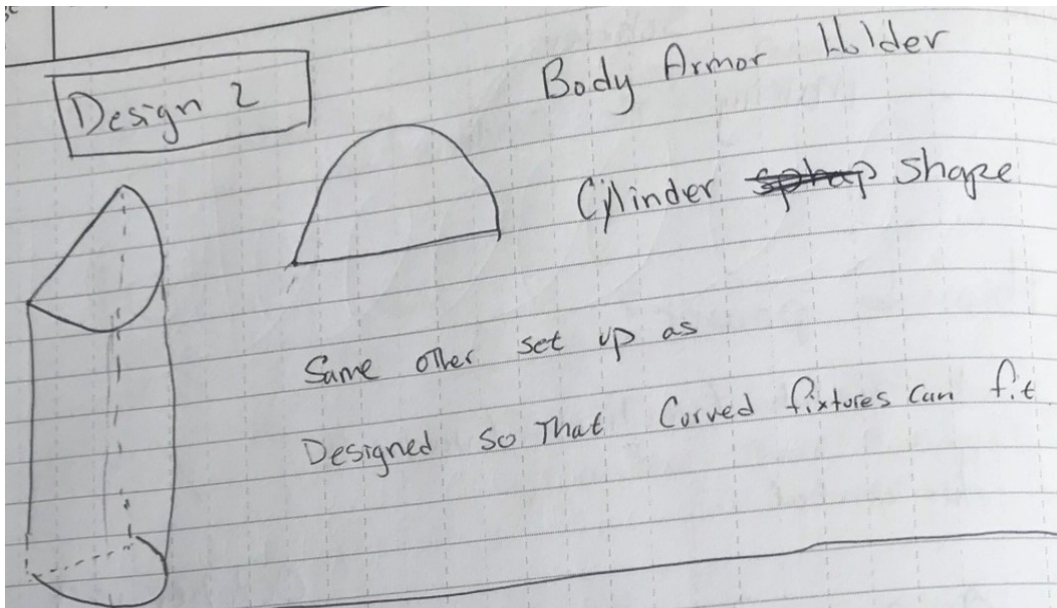 Design 2
Body Armor Holder
Cylinder shape
Same other set up as
Designed so That Curved fixtures Can fit